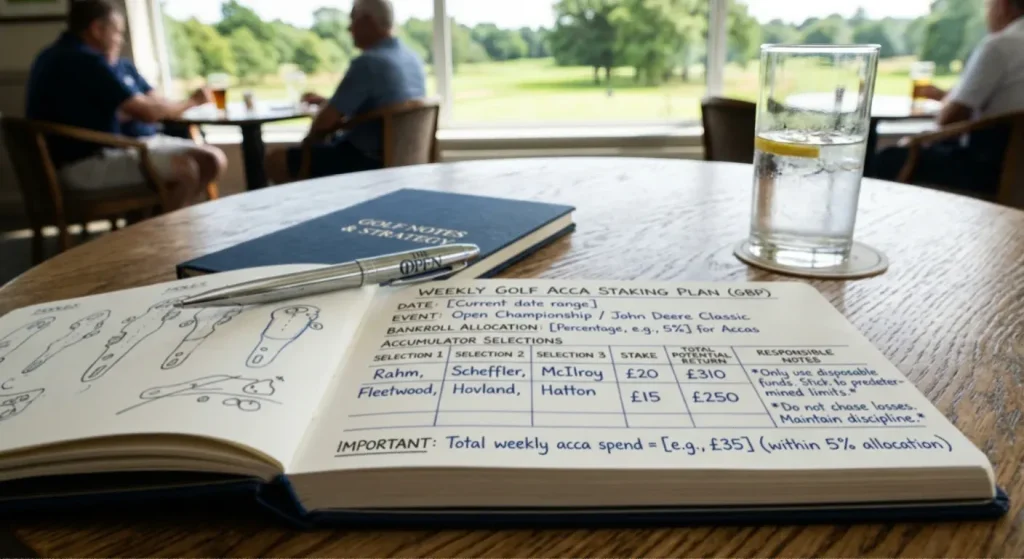 GOLF NOTES
& STRATEGY
THE
OPEN
WEEKLY GOLF ACCA STAKING PLAN (GBP)
DATE: [Current date range]
EVENT: Open Championship / John Deere Classic
BANKROLL ALLOCATION: [Percentage, e.g., 5%] for Accas
ACCUMULATOR SELECTIONS
SELECTION 1 SELECTION 2 SELECTION 3 STAKE TOTAL POTENTIAL RETURN RESPONSIBLE NOTES
Rahm, Scheffler, McIlroy £20 £310 *Only use disposable
funds. Stick to predeter-
mined limits.*
Fleetwood, Hovland, Hatton £15 £250 *Do not chase losses.
Maintain discipline.*
IMPORTANT: Total weekly acca spend = [e.g., £35] (within 5% allocation)